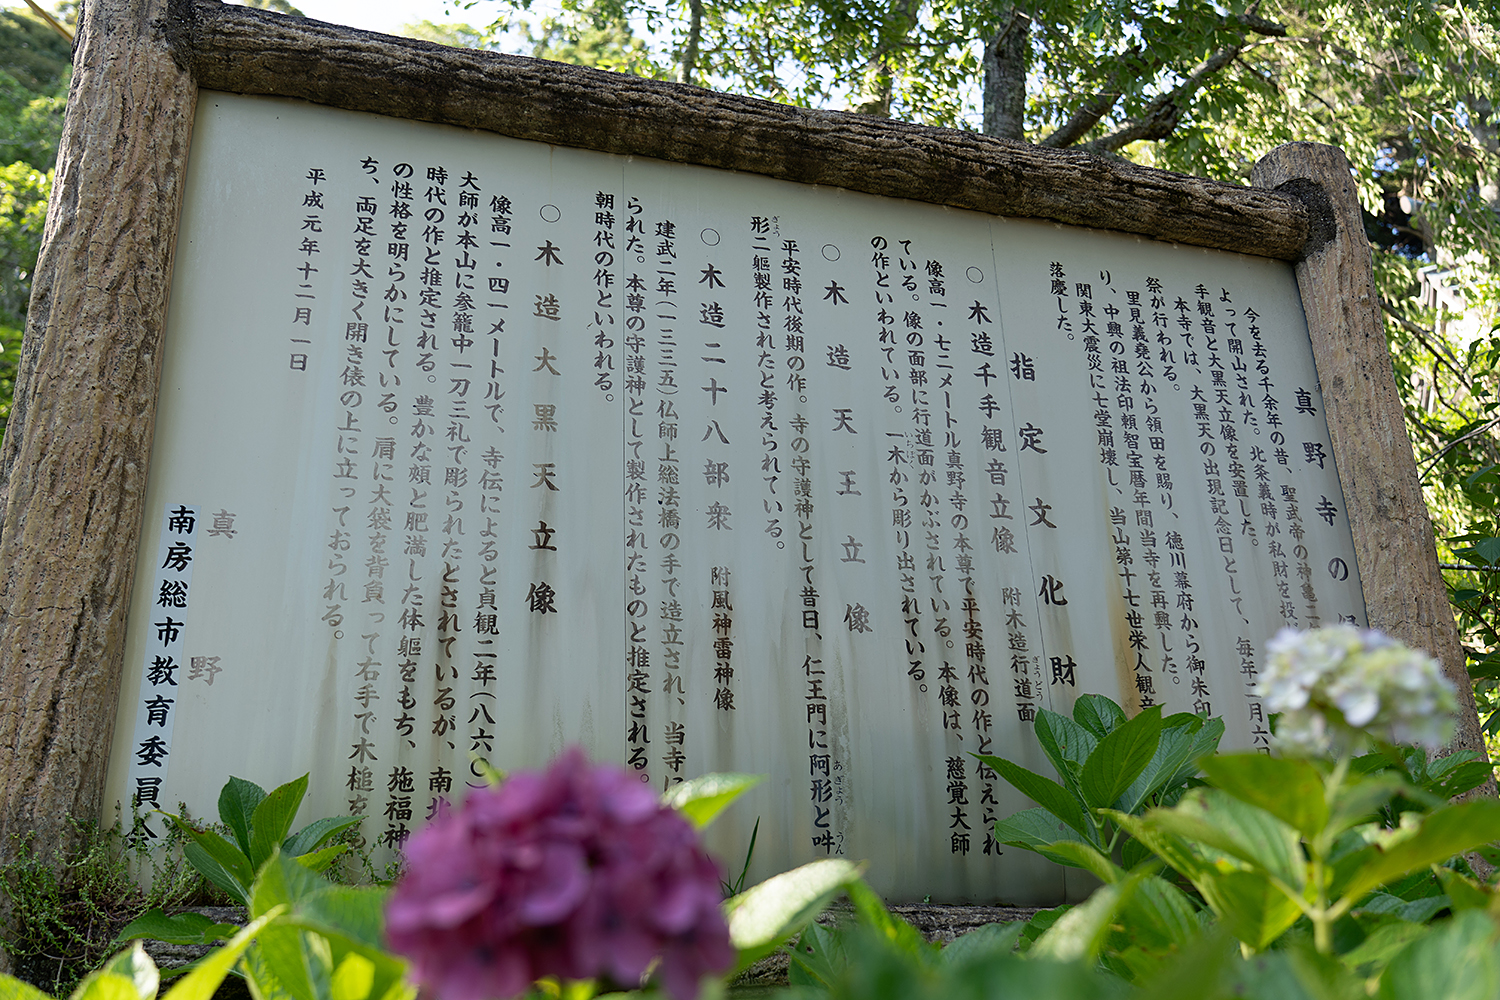 真野寺の
今を去る千余年の昔、聖武帝の神亀二
よって開山された。北条義時が私財を投
手観音と大黒天立像を安置した。
本寺では、大黒天の出現記念日として、毎年二月六日
祭が行われる。
里見義堯公から領田を賜り、徳川幕府から御朱印
り、中興の祖法印頼智宝暦年間当寺を再興した。
関東大震災に七堂崩壊し、当山第十七世栄人観音
落慶した。
指定文化財
○木造千手観音立像 附木造行道面
ぎょうどう
像高一・七二メートル真野寺の本尊で平安時代の作と伝えられ
ている。像の面部に行道面がかぶされている。本像は、慈覚大師
の作といわれている。一木から彫り出されている。
いちぼく
○木造天王立像
平安時代後期の作。寺の守護神として昔日、仁王門に阿形と吽
あぎょう うん
形二軀製作されたと考えられている。
ぎょう
○木造二十八部衆 附風神雷神像
建武二年(一三三五)仏師上総法橋の手で造立され、当寺に
られた。本尊の守護神として製作されたものと推定される。
朝時代の作といわれる。
○木造大黒天立像
像高一・四一メートルで、寺伝によると貞観二年(八六〇)
大師が本山に参籠中一刀三礼で彫られたとされているが、南北
時代の作と推定される。豊かな頬と肥満した体軀をもち、施福神
の性格を明らかにしている。肩に大袋を背負って右手で木槌を
ち、両足を大きく開き俵の上に立っておられる。
平成元年十二月一日
真野
南房総市教育委員会